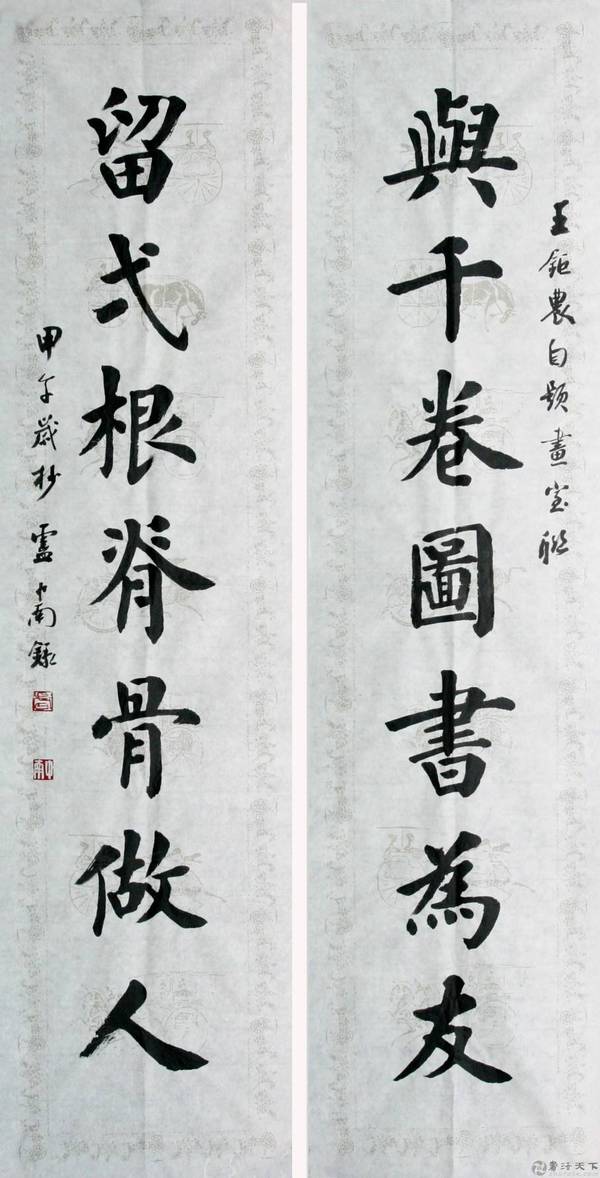 王鉅農自題畫室聯
與千卷圖書為友
留弌根脊骨做人
甲午歲杪盧中南錄
書法天下